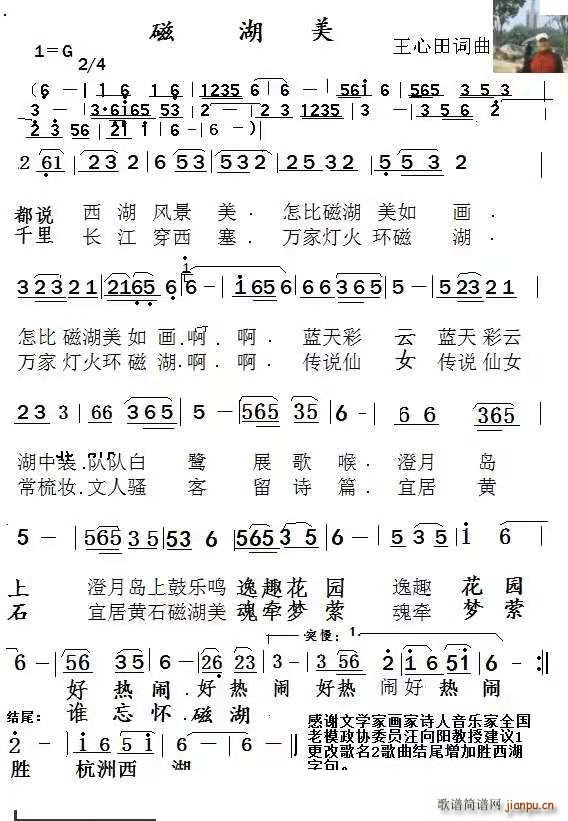 磁 湖 美
1=G 2/4 王心田词曲
(6 - | 1 6 | 1 6 | 1235 6 | 6 - | 561 6 | 565 3 5 3 |
3 - | 3·6165 53 | 2 - | 2 3 1235 | 3 5 6 2 |
2 3 56 | 21 1 | 6 - | 6 - )|
2 61 | 2 3 2 | 6 53 | 532 | 2532 | 5 5 3 2 |
都说 西 湖 风景 美 . 怎比磁湖 美如 画 .
千里 长 江 穿西 塞 . 万家灯火 环磁 湖 .
323 21 | 2165 6 | 6 - | 1656 | 66365 | 5 - | 52321 |
怎比 磁湖美 如 画 .啊 . 啊 . 蓝天彩 云 蓝天 彩云
万家 灯火环 磁 湖 .啊 . 啊 . 传说仙 女 传说 仙女
23 3 | 66 365 | 5 - | 565 35 | 6 - | 6 6 | 365 |
湖中装 .队队白 鹭 展 歌 喉 . 澄月 岛
常梳妆 .文人骚 客 留 诗 篇 . 宜居 黄
5 - | 565 3 5 | 53 6 | 565 3 5 | 6 - | 6 535 | 1 6 |
上 澄月岛上鼓乐鸣 逸趣花园 逸趣 花园
石 宜居黄石磁湖美 魂牵梦萦 魂牵 梦萦
突慢: 1
6 - | 56 35 | 5 - | 26 23 | 3 - | 3 56 2 | 1 6 51 | 6 - :||
好 热 闹 .好 热 闹 好热 闹好 热 闹
结尾: 谁 忘怀 .磁 湖
2 - | 1 6 5 1 | 1 - ||
胜 杭洲西 湖
感谢文学家画家诗人音乐家全国
老模政协委员汪向阳教授建议1
更改歌名2歌曲结尾增加胜西湖
字句。
歌谱简谱网 jianpu.cn